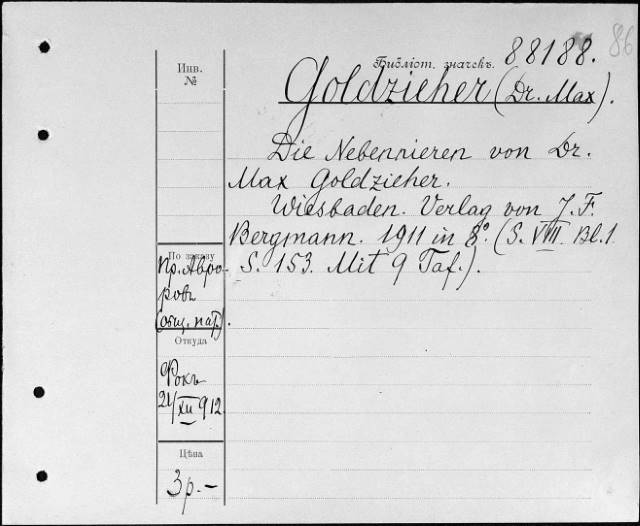 86
Инв.
№
Библіот. значекъ. 88188.
Goldzieher (Dr. Max).
Die Nebennieren von Dr.
Max Goldzieher.
Wiesbaden. Verlag von J. F.
Bergmann. 1911 in 8°. (S. VIII. Bl. 1.
S. 153. Mit 9 Taf.).
По заказу
Пр. Авро-
ровъ
(общ. пат.).
Откуда
Фокъ
21/XII 912.
Цѣна
3 р. –